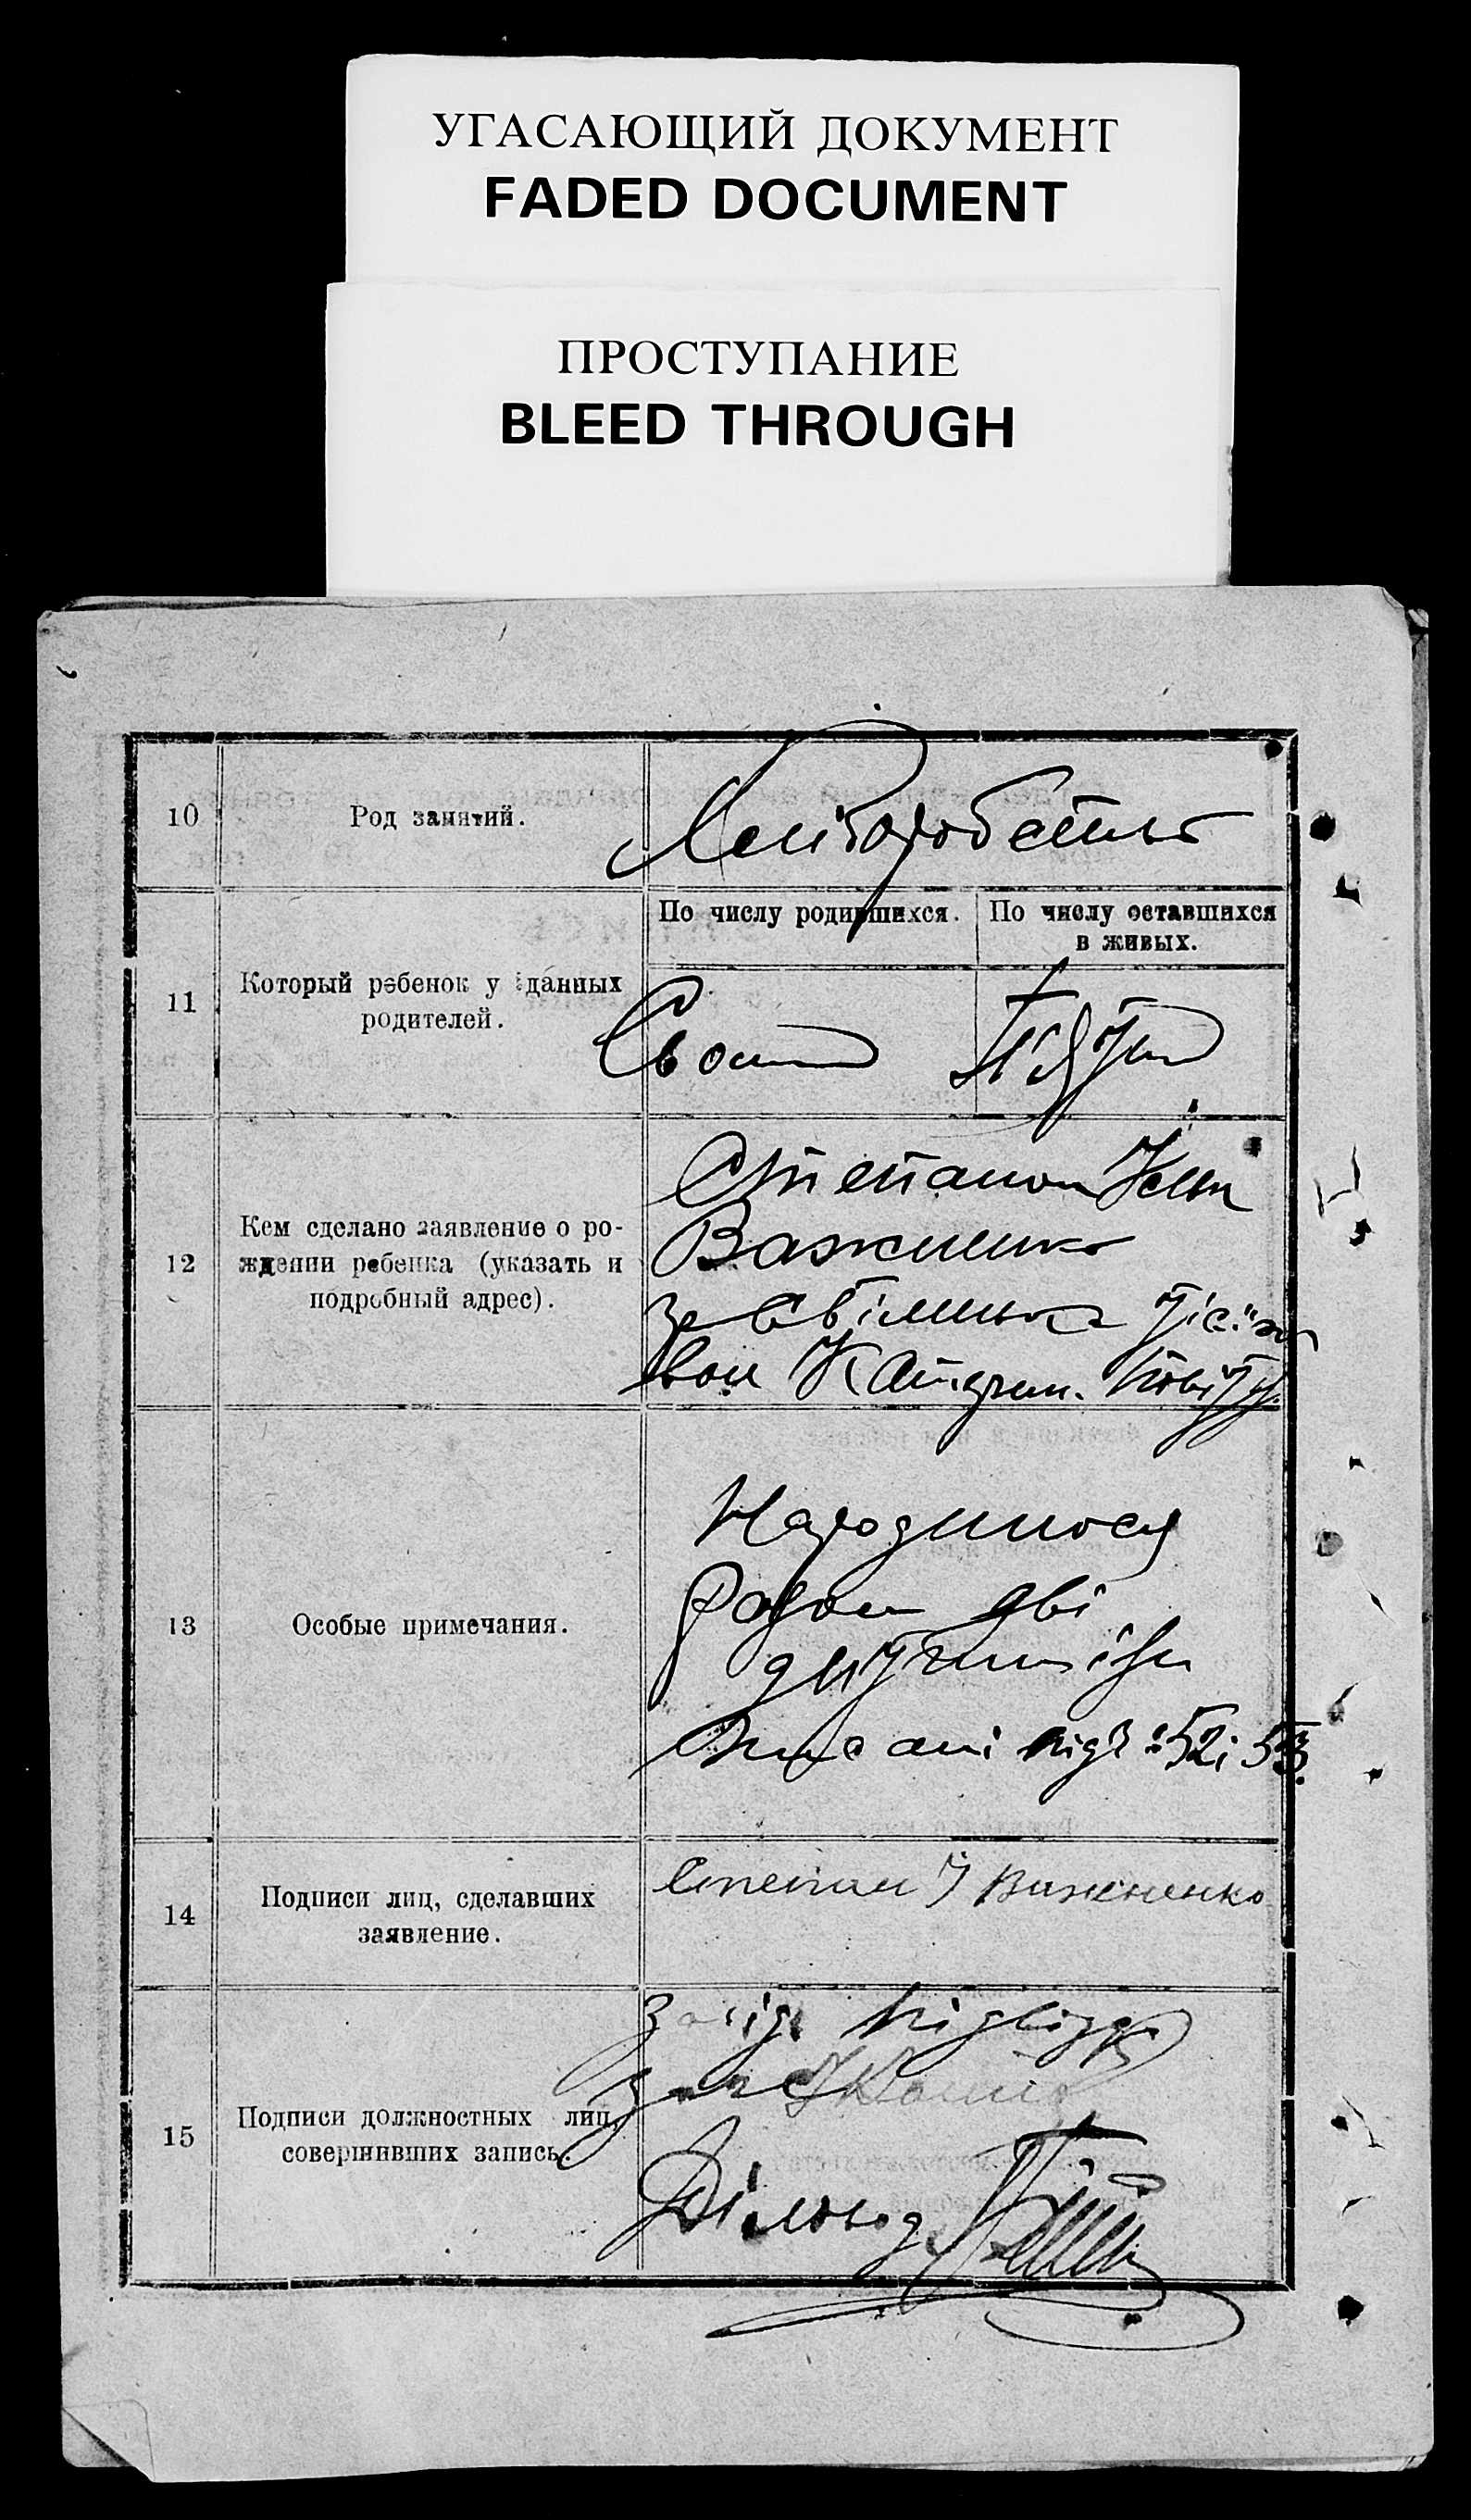 УГАСАЮЩИЙ ДОКУМЕНТ
FADED DOCUMENT
ПРОСТУПАНИЕ
BLEED THROUGH
10
Род занятий.
Хліборобство
По числу родившихся.
По числу оставшихся
в живых.
11
Который ребенок у данных
родителей.
Пятий
12
Кем сделано заявление о ро-
ждении ребенка (указать и
подробный адрес).
Степаном
Важненко
13
Особые примечания.
Народилося
разом дві
дитини
під № 52 і 53.
14
Подписи лиц, сделавших
заявление.
Степан Важненко
15
Подписи должностных лиц,
совершивших запись.
Завід. підвідд.
Діловод